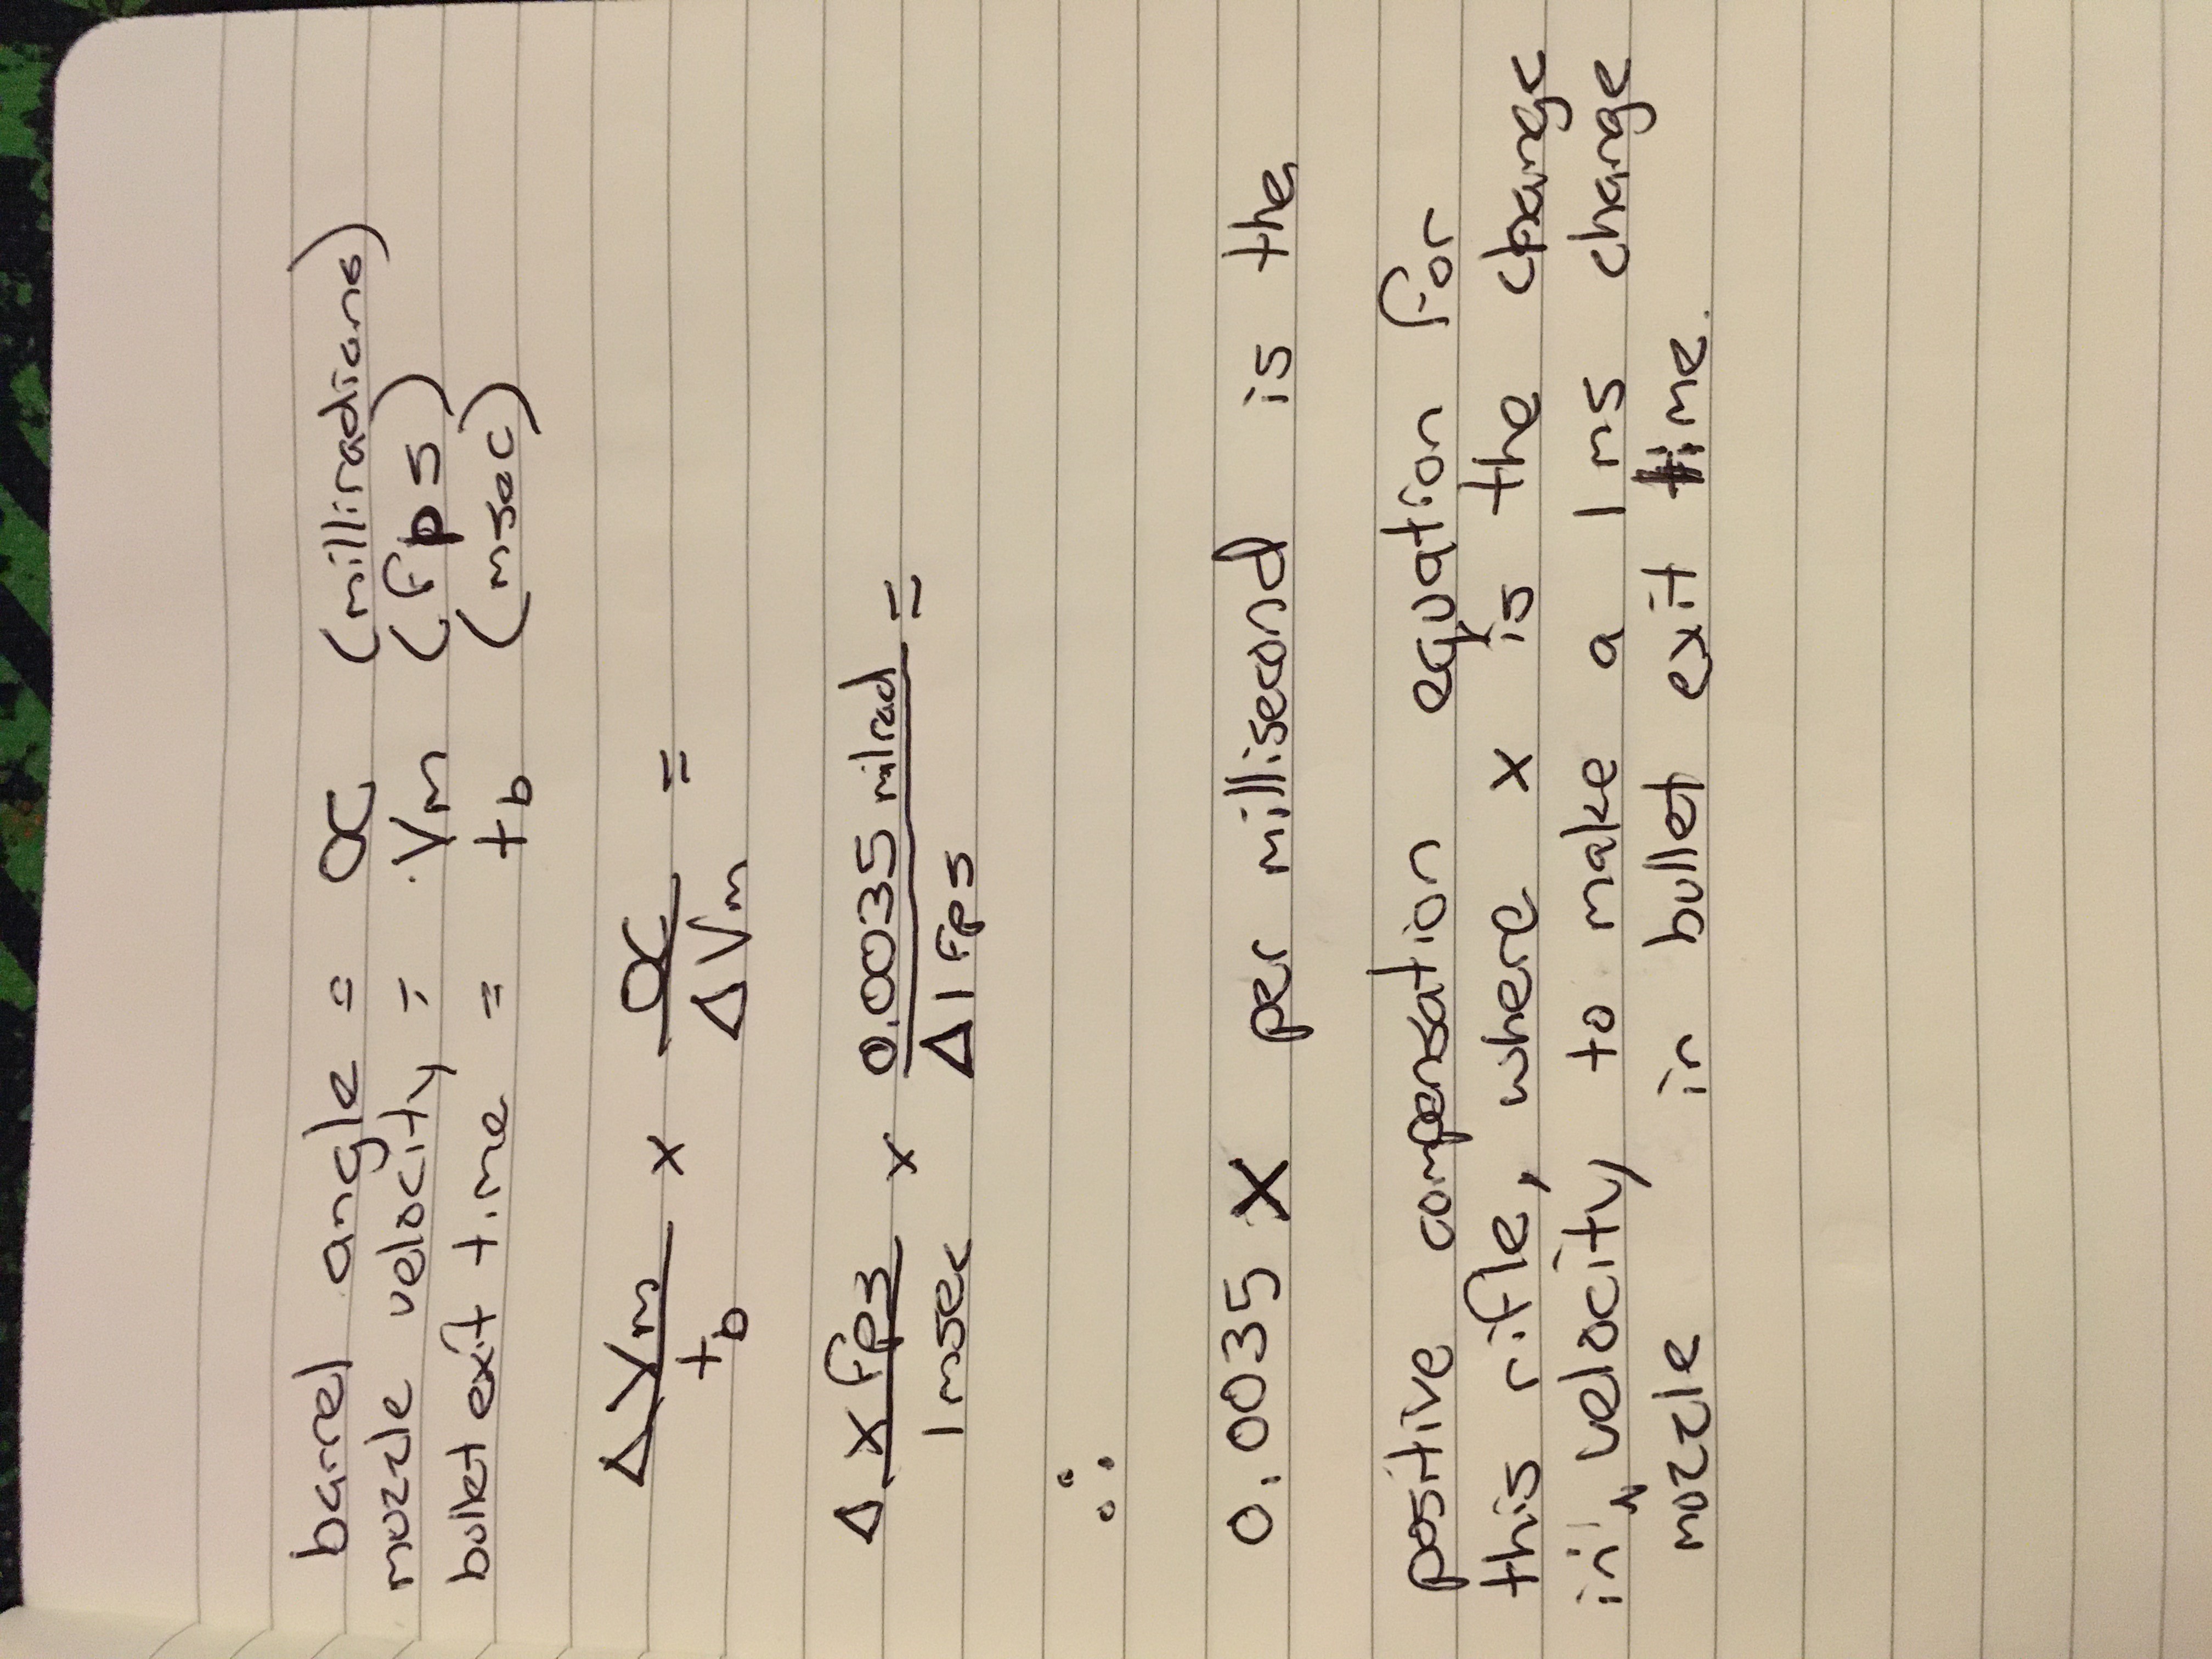 barrel angle = α (milliradians)
muzzle velocity = Vm (fps)
bullet exit time = tb (msec)
ΔVm / tb × α / ΔVm =
Δ x fps / 1 msec × 0.0035 milrad / Δ 1 fps =
∴
0.0035 x per millisecond is the
positive compensation equation for
this rifle, where x is the change
in ^ velocity to make a 1 ms change
muzzle in bullet exit time.